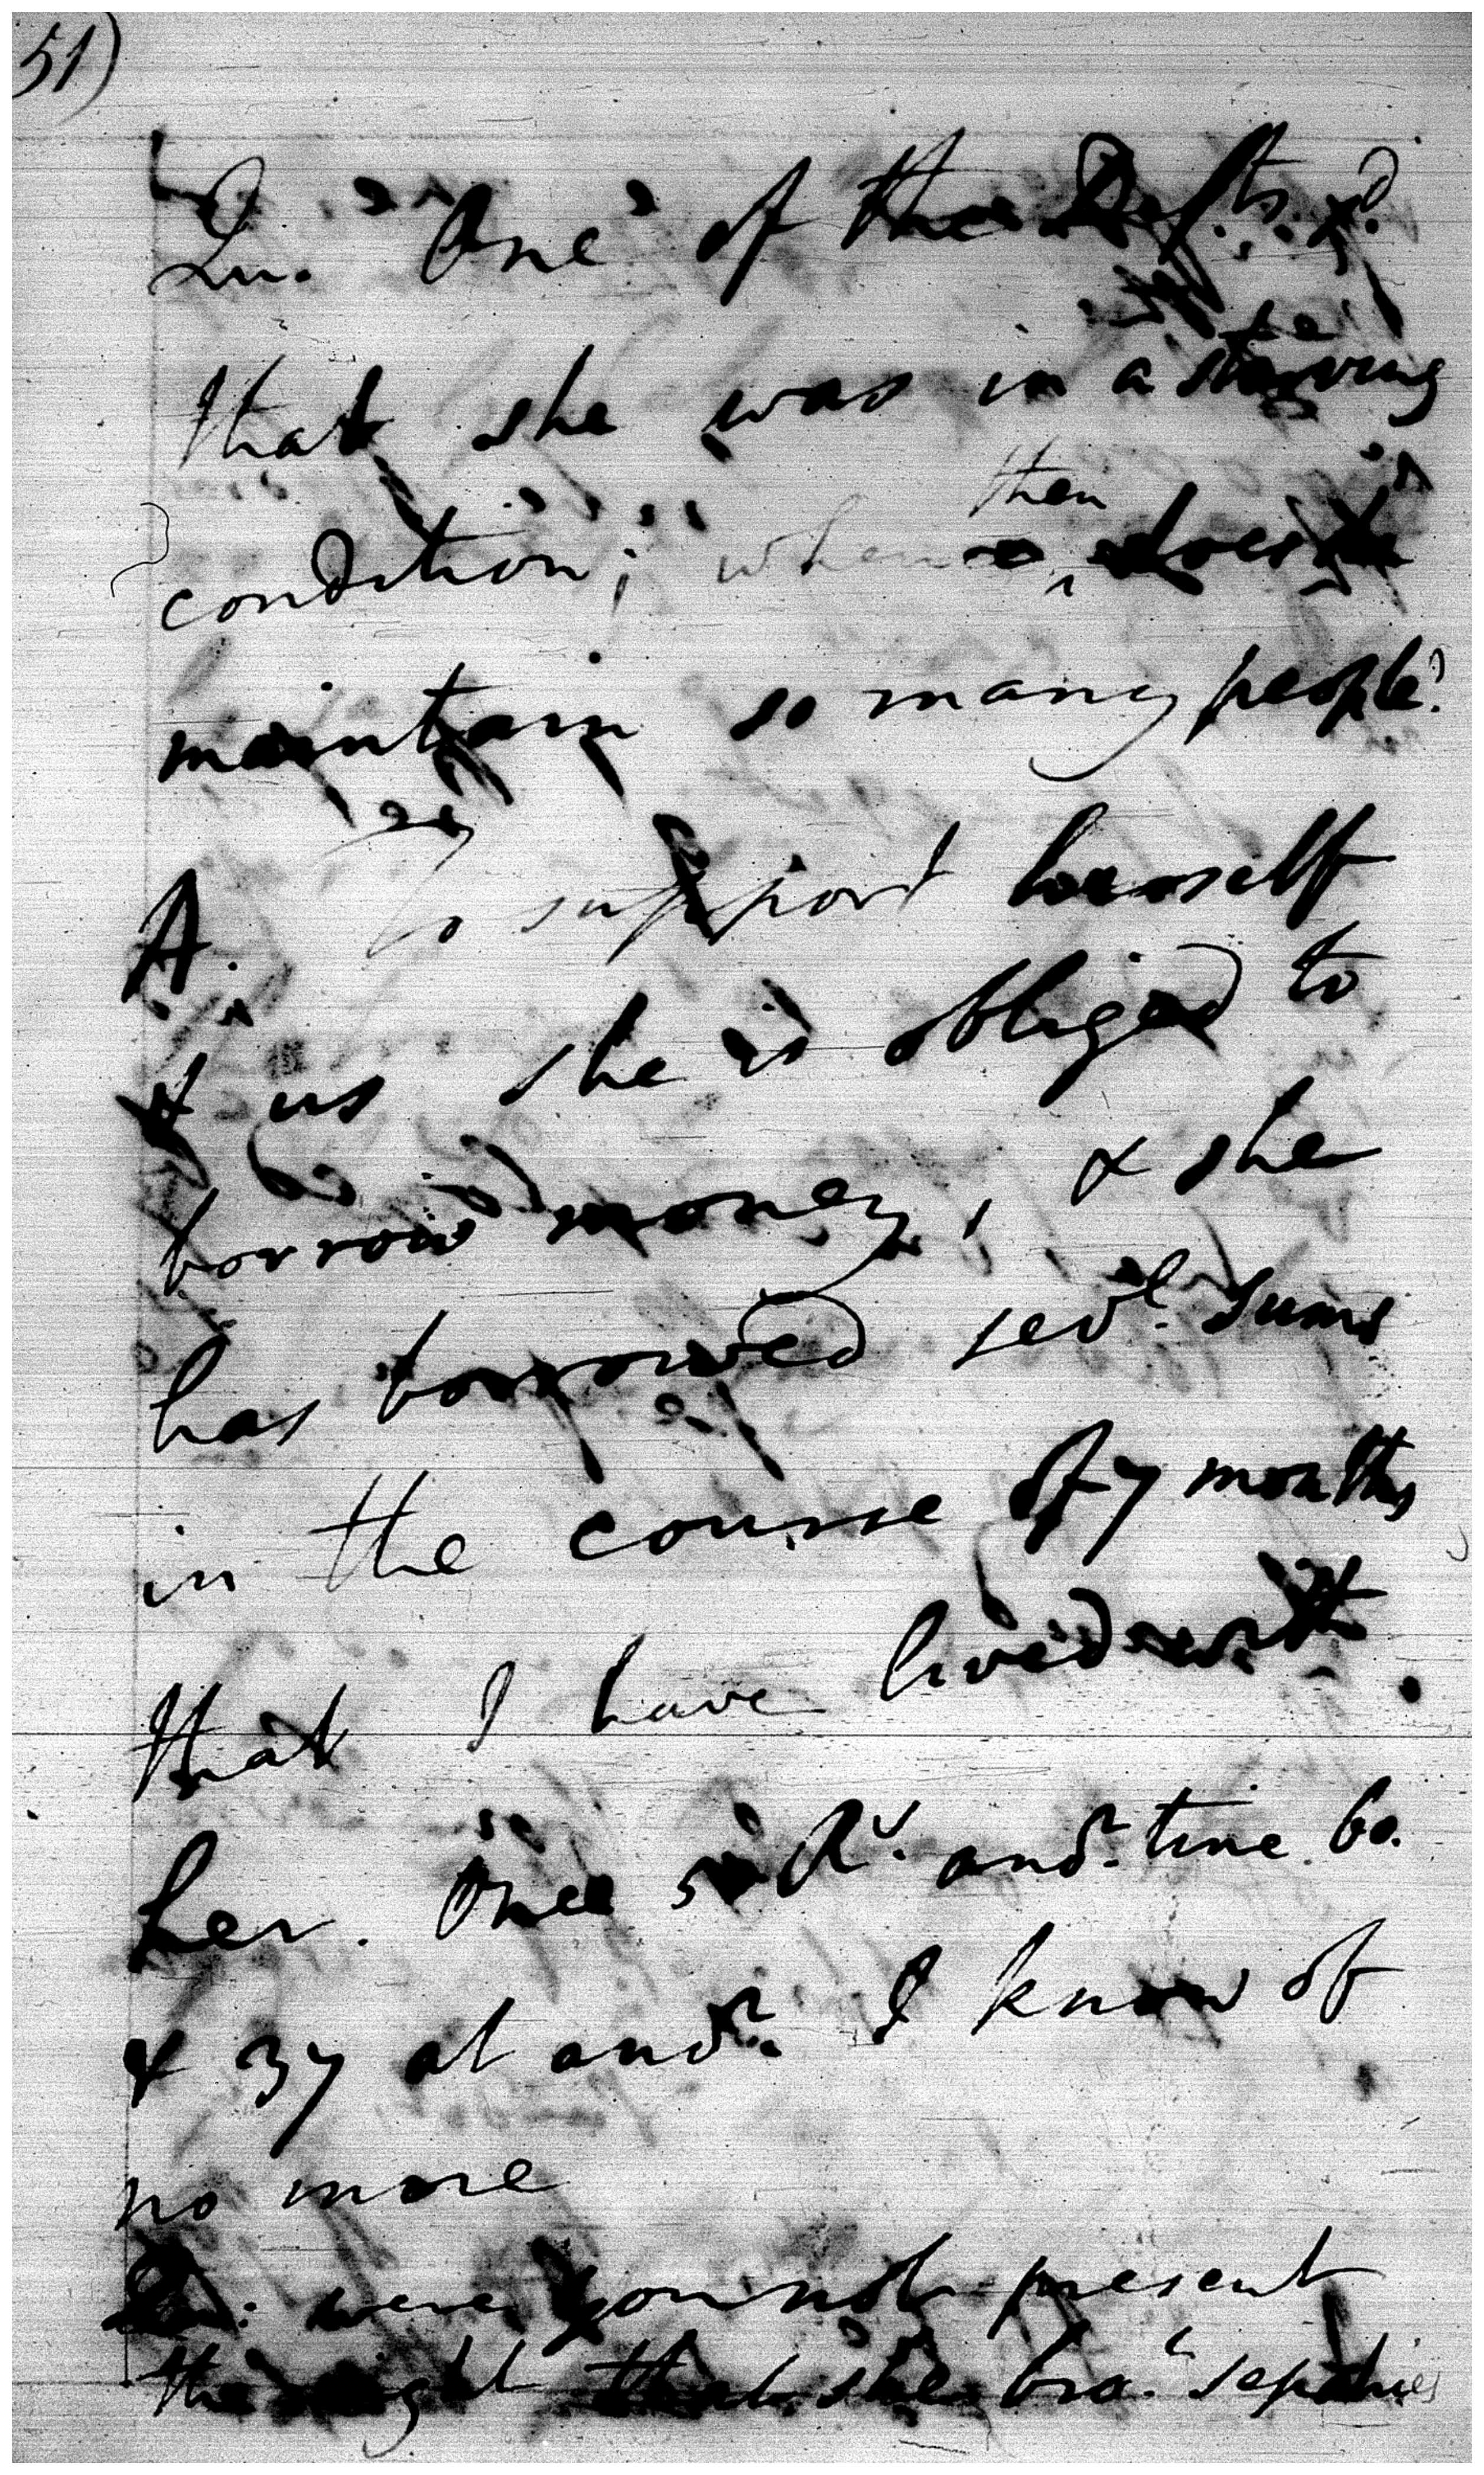 51)
Qu. One of the Defts. sd.
that she was in a starving
condition; whence then does she
maintain so many people?
A. To support herself
& us she is obliged to
borrow money, & she
has borrowed sevl. sums
in the course of 7 months
that I have lived with
her. Once 50 Rs. anor. time 60.
& 37 at anor. I know of
no more
Qu: were you not present
the night that she bro.t